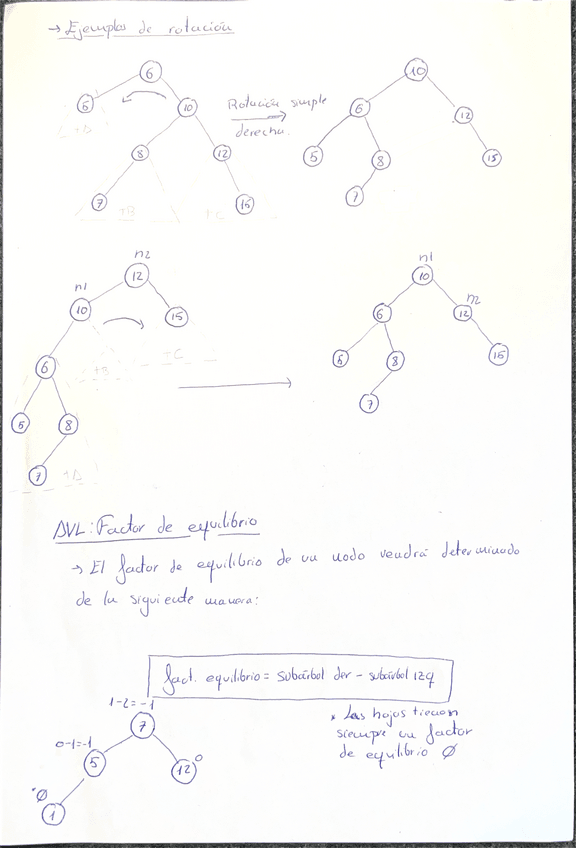 → Ejemplos de rotación
6
5
10
8
12
7
15
tA
tB
tC
Rotación simple
derecha.
10
6
12
5
8
15
7
n2
12
n1
10
15
6
5
8
7
tB
tC
tA
n1
10
n2
6
12
5
8
15
7
AVL: Factor de equilibrio
→ El factor de equilibrio de un nodo vendrá determinado
de la siguiente manera:
fact. equilibrio = subárbol der - subárbol izq
1-2=-1
7
0-1=-1
5
12
0
Ø
1
* Las hojas tienen
siempre un factor
de equlibrio Ø